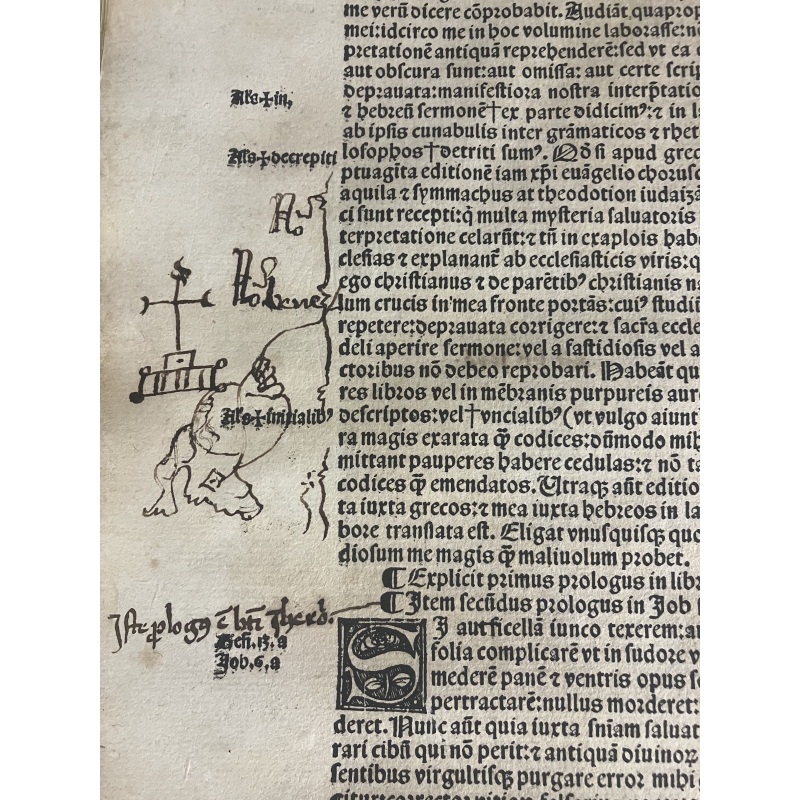 me verū dicere cōprobabit. Audiāt quaprop
mei:idcirco me in hoc volumine laborasse:n
pretationē antiquā reprehenderē:sed vt ea
Als ☩ in,
aut obscura sunt:aut omissa: aut certe scrip
deprauata:manifestiora nostra interp̄tatio
⁊ hebreū sermonē†ex parte didicimꝰ:⁊ in l
ab ipsis cunabulis inter grāmaticos ⁊ rhet
Als ☩ decrepiti
losophos†detriti sumꝰ. Qd̓ si apud grec
ptuagīta editionē iam xp̄i euāgelio
aquila ⁊ symmachus at theodotion iudaizā
Nō
ci sunt recepti:q̇ multa mysteria saluatoris
terpretatione celarūt:⁊ tn̄ in exaplois hab
clesias ⁊ explanant̄ ab ecclesiasticis viris:q
Nō bene
ego christianus ⁊ de parētibꝰ christianis n
lum crucis in mea fronte portās:cuiꝰ studiū
repetere:deprauata corrigere:⁊ sacra eccle
deli aperire sermone:vel a fastidiosis vel a
ctoribus nō debeo reprobari. Habeāt qu
res libros vel in mēbranis purpureis aur
Als ☩ initialibꝰ
descriptos:vel†vncialibꝰ(vt vulgo aiunt
ra magis exarata q̄ꝫ codices:dūmodo mih
mittant pauperes habere cedulas:⁊ nō t
codices q̄ꝫ emendatos. Utraqꝫ aūt editio
ta iuxta grecos:⁊ mea iuxta hebreos in la
bore translata est. Eligat vnusquisqꝫ quo
diosum me magis q̄ꝫ maliuolum probet.
¶ Explicit primus prologus in libr
¶ Item secūdus prologus in Job
Iste plogꝰ ē bti Ihero.
Gen.13.a
Job.6.a
SI aut fiscellā iunco texerem:a
folia complicarē vt in sudore v
mederē panē ⁊ ventris opus s
pertractarē:nullus morderet:
deret. Nunc aūt quia iuxta sn̄iam saluat
rari cibū qui nō perit:⁊ antiquā diuinoꝝ
sentibus virgultisqꝫ purgare error mihi